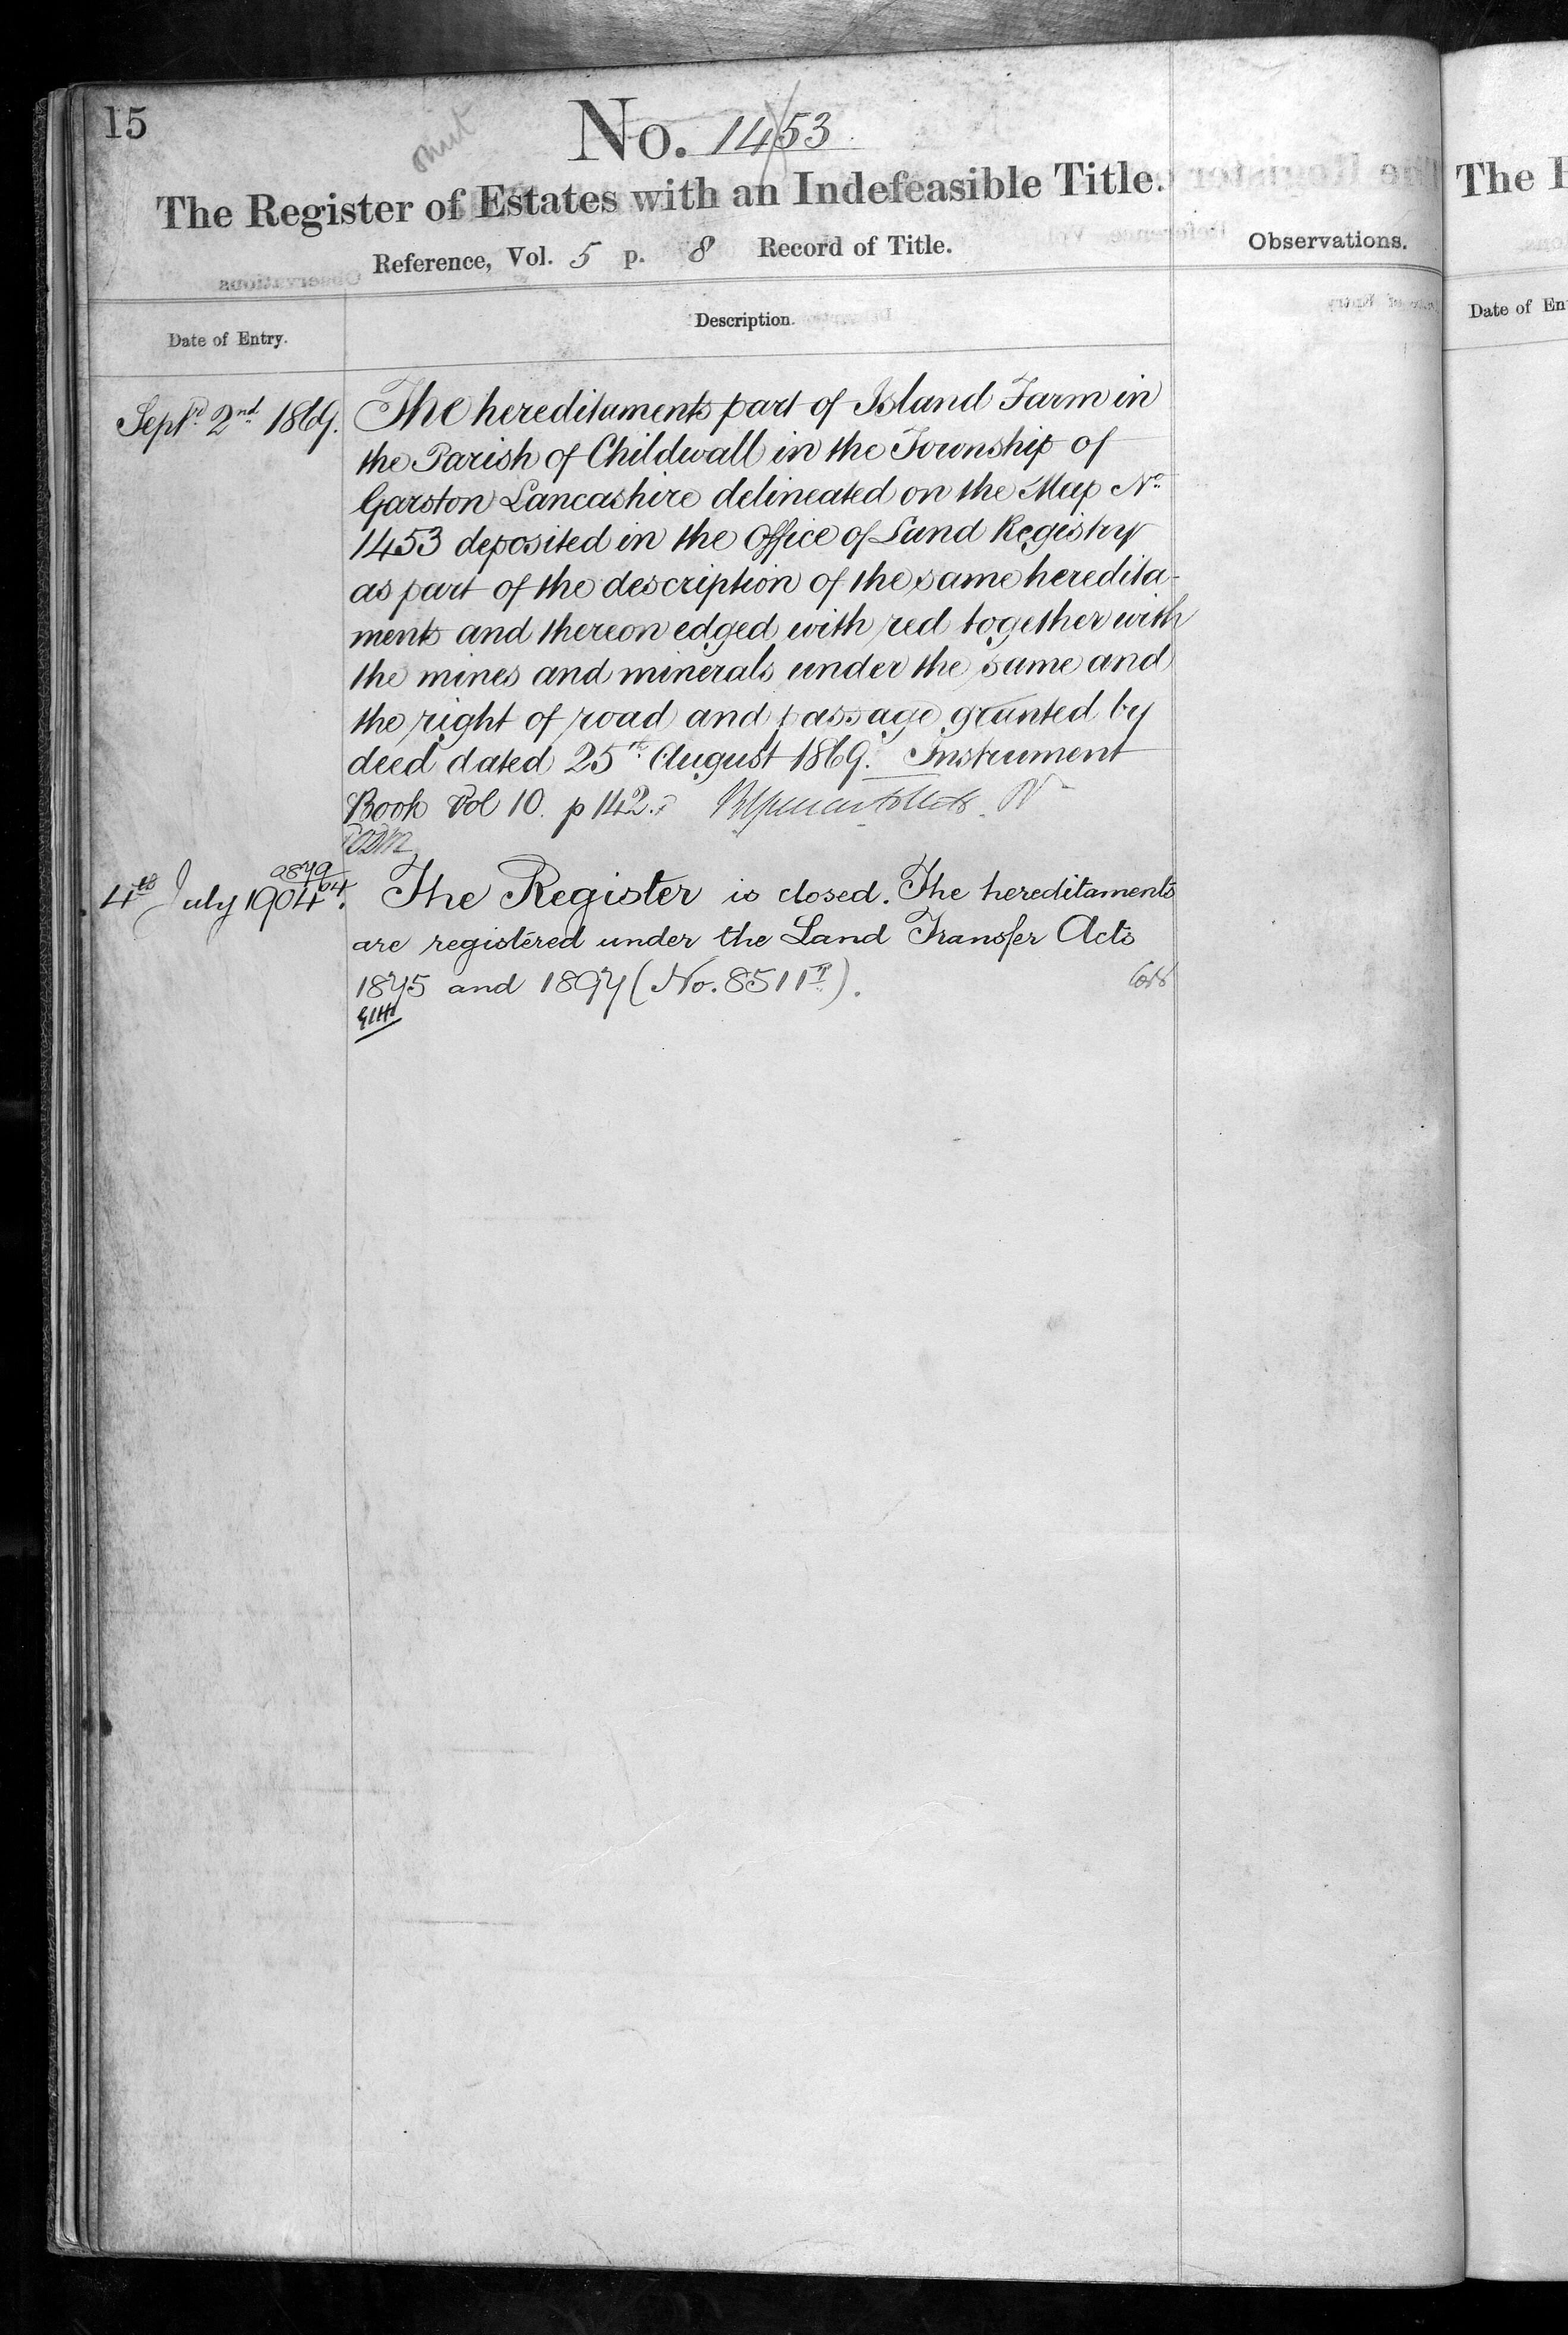 15
No. 1453
The Register of Estates with an Indefeasible Title.
Reference, Vol. 5 p. 8 Record of Title.
Observations.
Date of Entry.
Description.
Septr. 2nd. 1869. The hereditaments part of Island Farm in
the Parish of Childwall in the Township of
Garston Lancashire delineated on the Map No.
1453 deposited in the Office of Land Registry
as part of the description of the same heredita-
ments and thereon edged with red together with
the mines and minerals under the same and
the right of road and passage granted by
deed dated 25th. August 1869. Instrument
Book Vol 10. p 142.
4th July 1904. The Register is closed. The hereditaments
are registered under the Land Transfer Acts
1875 and 1897 (No. 8511).
The
Date of En